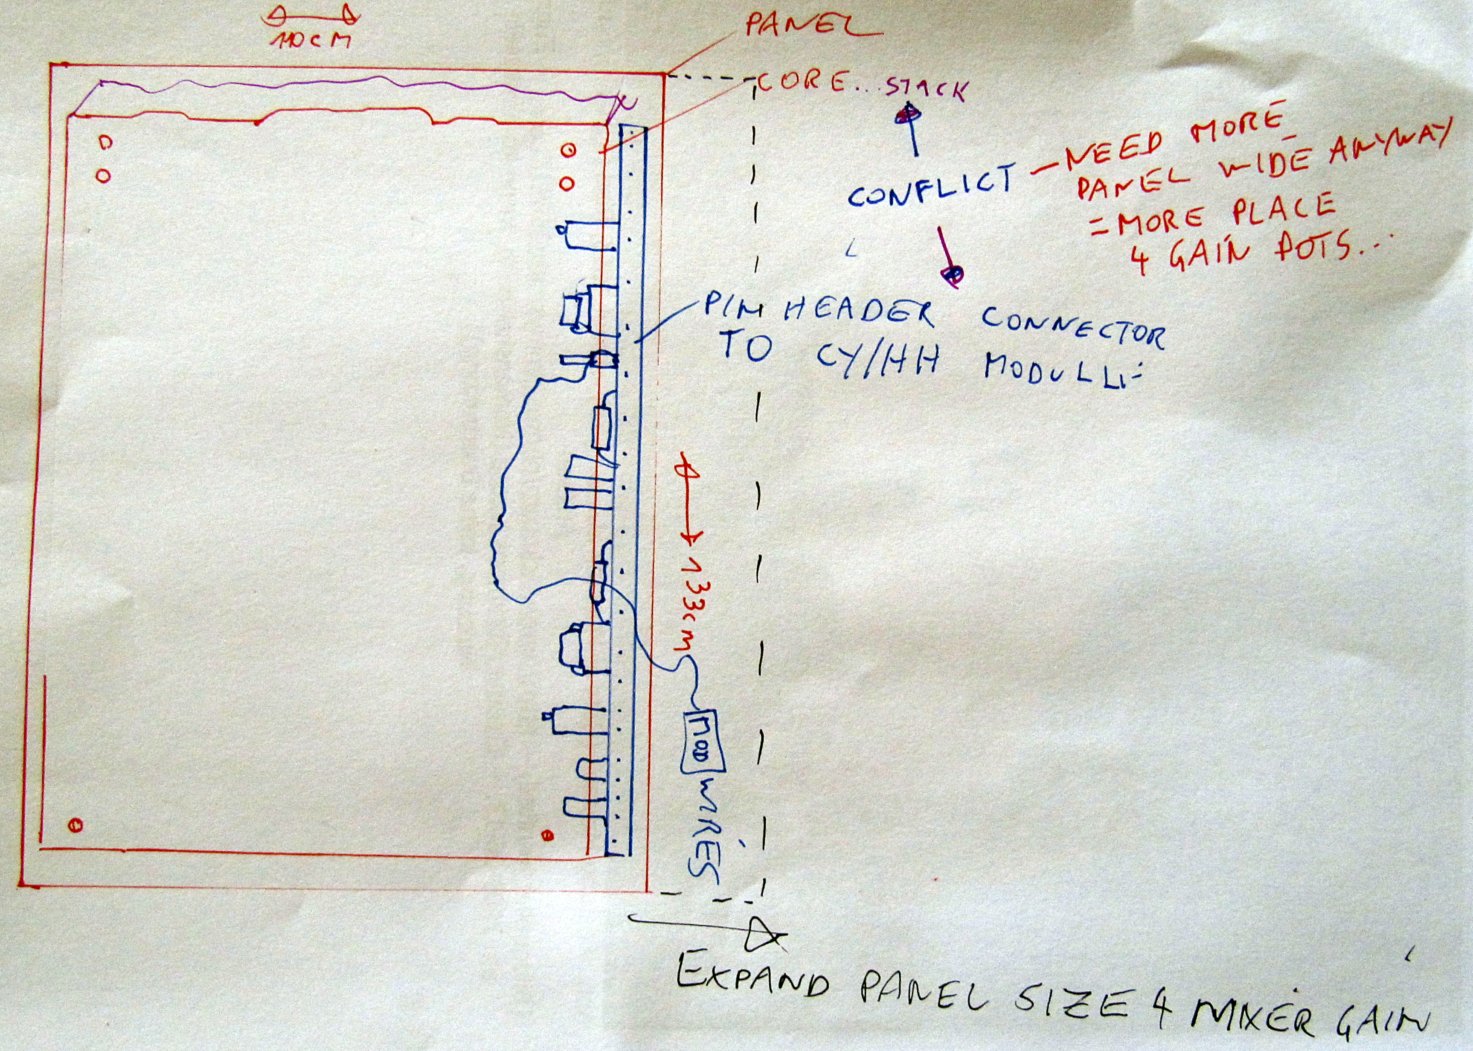 110CM
PANEL
CORE... STACK
CONFLICT – NEED MORE
PANEL WIDE ANYWAY
= MORE PLACE
4 GAIN POTS...
PIN HEADER CONNECTOR
TO CY/HH MODULL
133CM
MOD
WIRES
EXPAND PANEL SIZE 4 MIXER GAIN